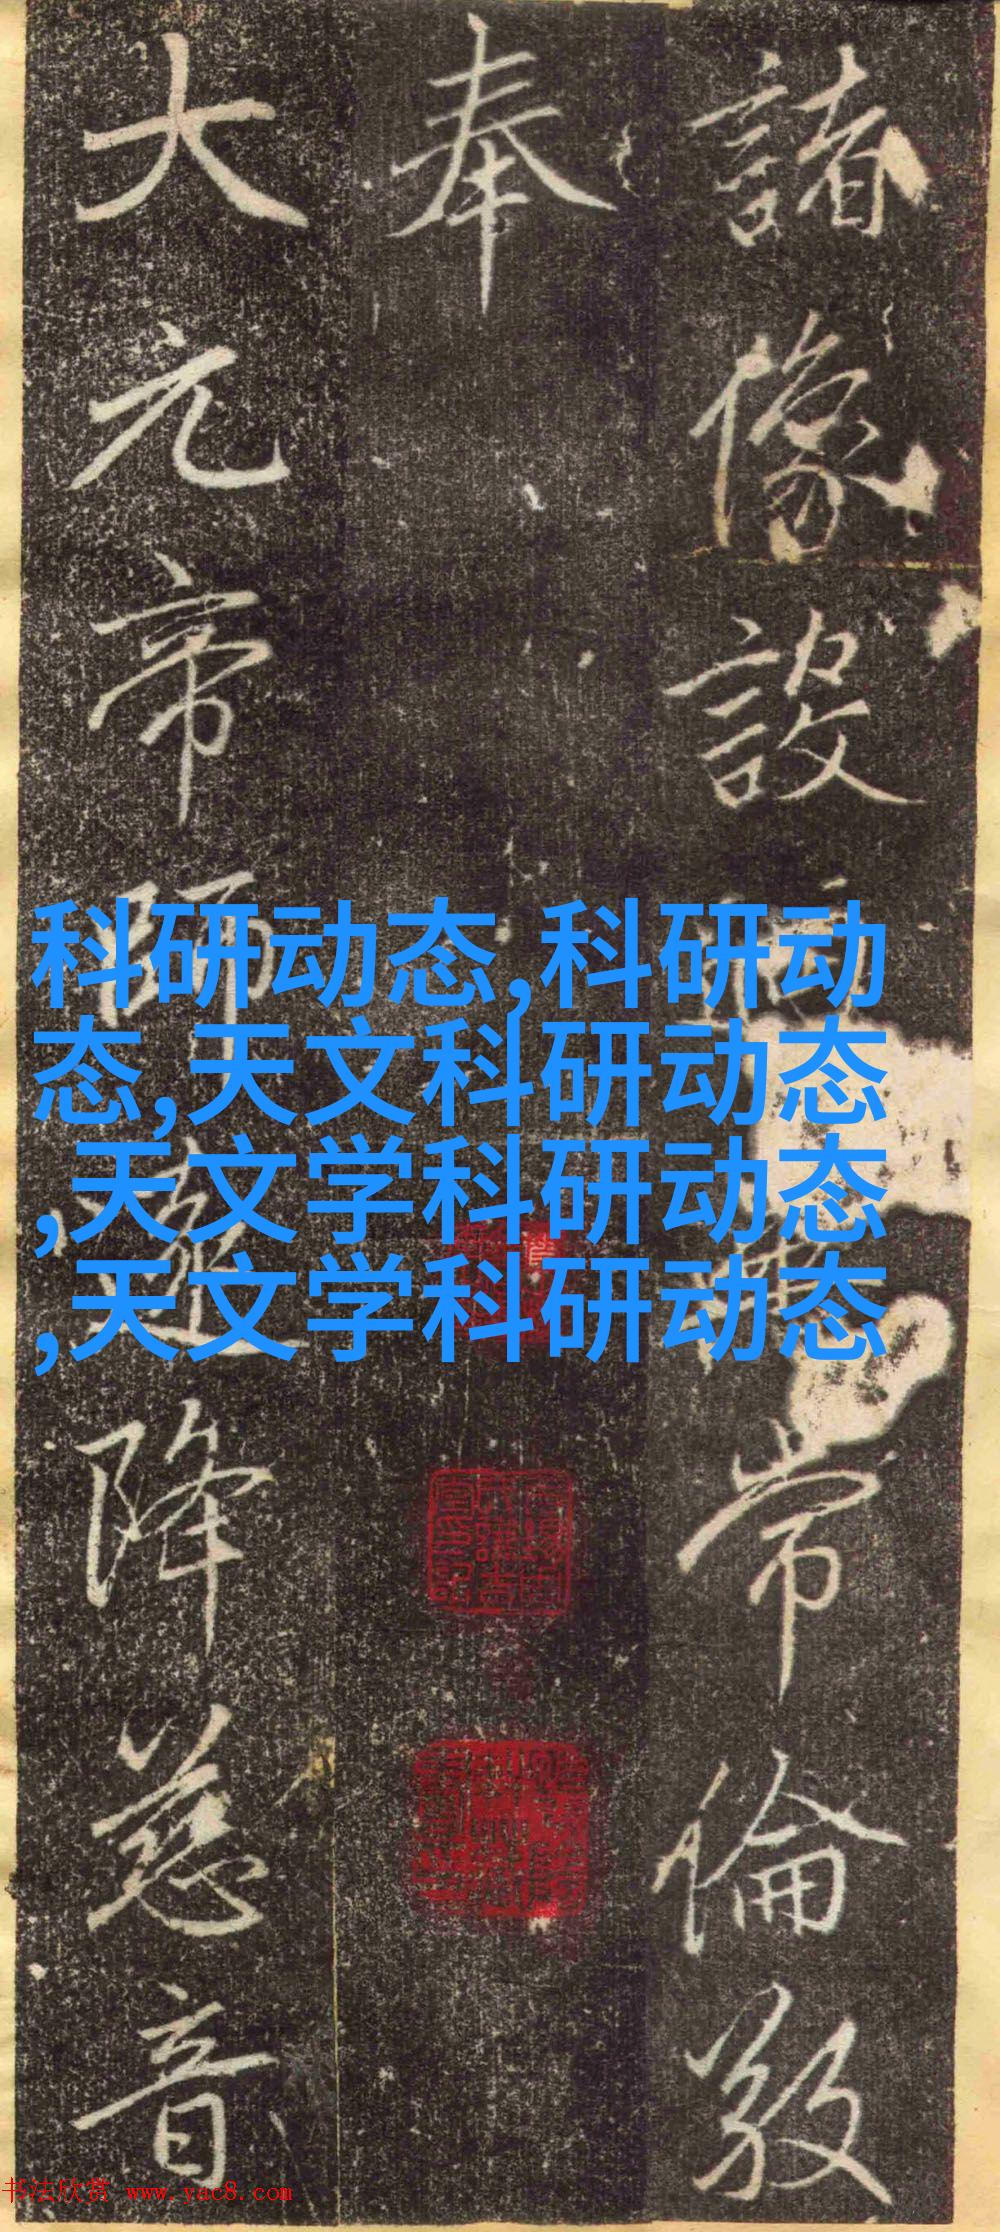 諸像設常倫
奉
大元帝師遂降慈音
科研动态,科研动
态,天文科研动态
,天文学科研动态
,天文学科研动态
书法欣赏 www.yac8.com